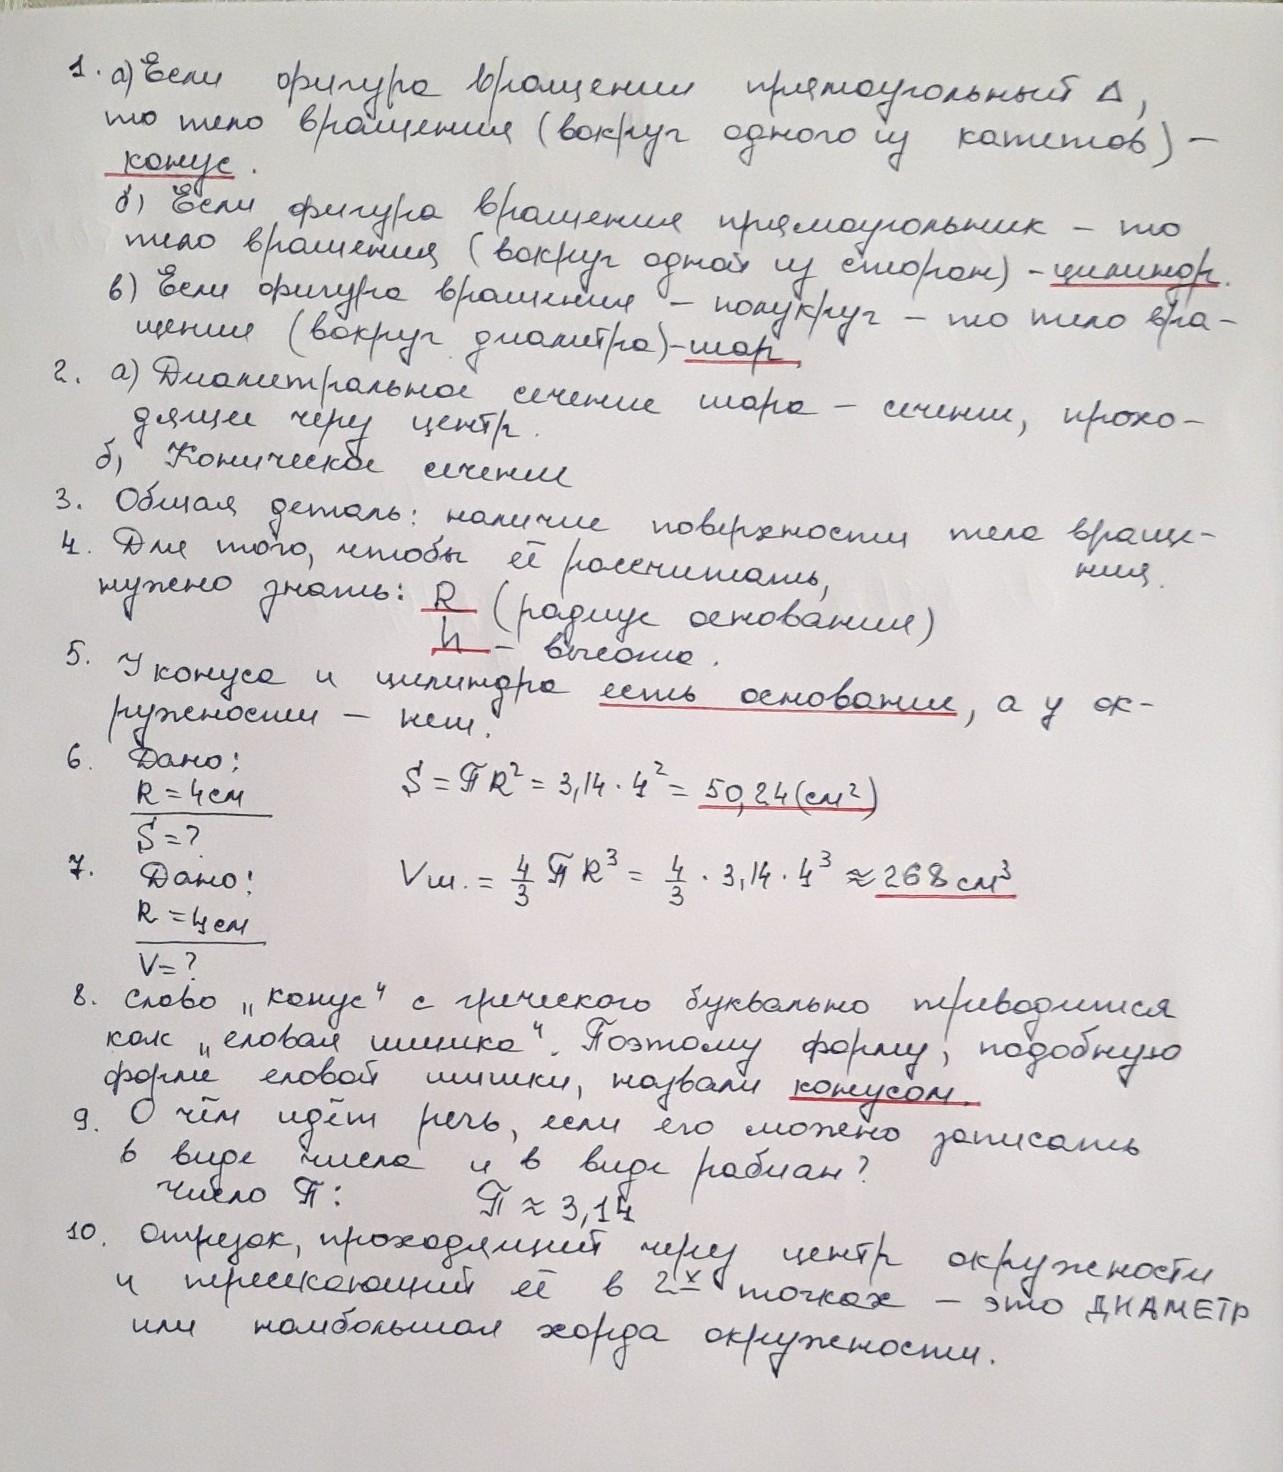 1. а) Если фигура вращении прямоугольный Δ,
то тело вращения (вокруг одного из катетов) –
конус.
б) Если фигура вращения прямоугольник – то
тело вращения (вокруг одной из сторон) – цилиндр.
в) Если фигура вращения – полукруг – то тело вра-
щения (вокруг диаметра) – шар.
2. а) Диаметральное сечение шара – сечение, прохо-
дящее через центр.
б) Коническое сечение
3. Общая деталь: наличие поверхности тела враще-
ния.
4. Для того, чтобы её рассчитать,
нужно знать: R (радиус основания)
h – высота.
5. У конуса и цилиндра есть основание, а у ок-
ружности – нет.
6. Дано:
R = 4см
S = ПR² = 3,14 · 4² = 50,24 (см²)
S = ?
7. Дано:
Vш. = 4/3 ПR³ = 4/3 · 3,14 · 4³ ≈ 268 см³
R = 4см
V = ?
8. Слово „конус“ с греческого буквально переводится
как „еловая шишка“. Поэтому форму, подобную
форме еловой шишки, назвали конусом.
9. О чём идёт речь, если его можно записать
в виде числа и в виде рабиан?
Число П: П ≈ 3,14
10. Отрезок, проходящий через центр окружности
и пересекающий её в 2х точках – это ДИАМЕТР
или наибольшая хорда окружности.